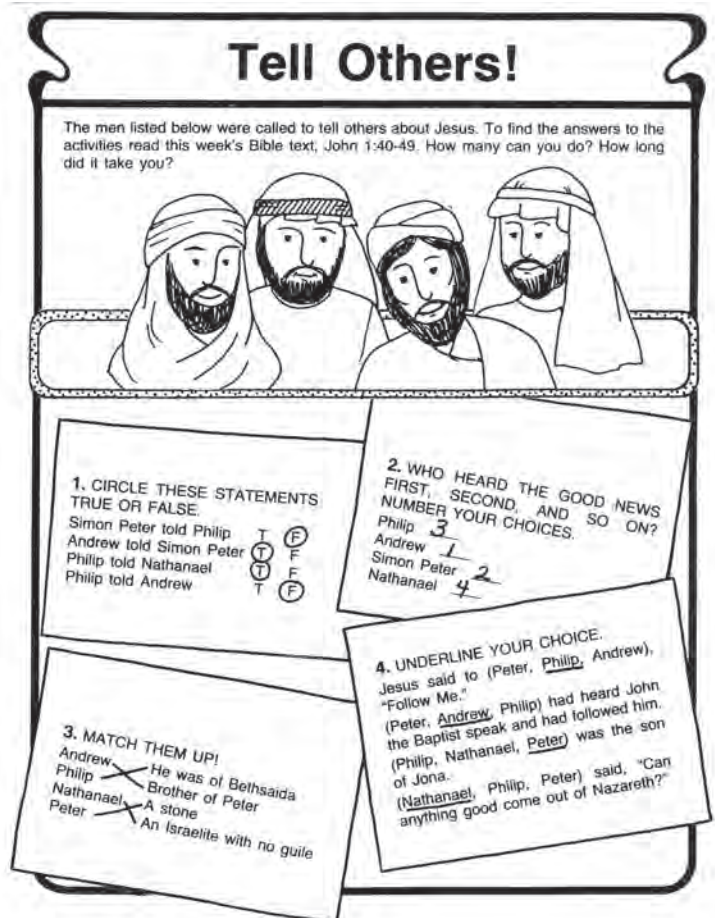 Tell Others!
The men listed below were called to tell others about Jesus. To find the answers to the
activities read this week's Bible text, John 1:40-49. How many can you do? How long
did it take you?
1. CIRCLE THESE STATEMENTS
TRUE OR FALSE.
Simon Peter told Philip T F
Andrew told Simon Peter T F
Philip told Nathanael T F
Philip told Andrew T F
2. WHO HEARD THE GOOD NEWS
FIRST, SECOND, AND SO ON?
NUMBER YOUR CHOICES.
Philip 3
Andrew 1
Simon Peter 2
Nathanael 4
3. MATCH THEM UP!
Andrew He was of Bethsaida
Philip Brother of Peter
Nathanael A stone
Peter An Israelite with no guile
4. UNDERLINE YOUR CHOICE.
Jesus said to (Peter, Philip, Andrew),
"Follow Me."
(Peter, Andrew, Philip) had heard John
the Baptist speak and had followed him.
(Philip, Nathanael, Peter) was the son
of Jona.
(Nathanael, Philip, Peter) said, "Can
anything good come out of Nazareth?"